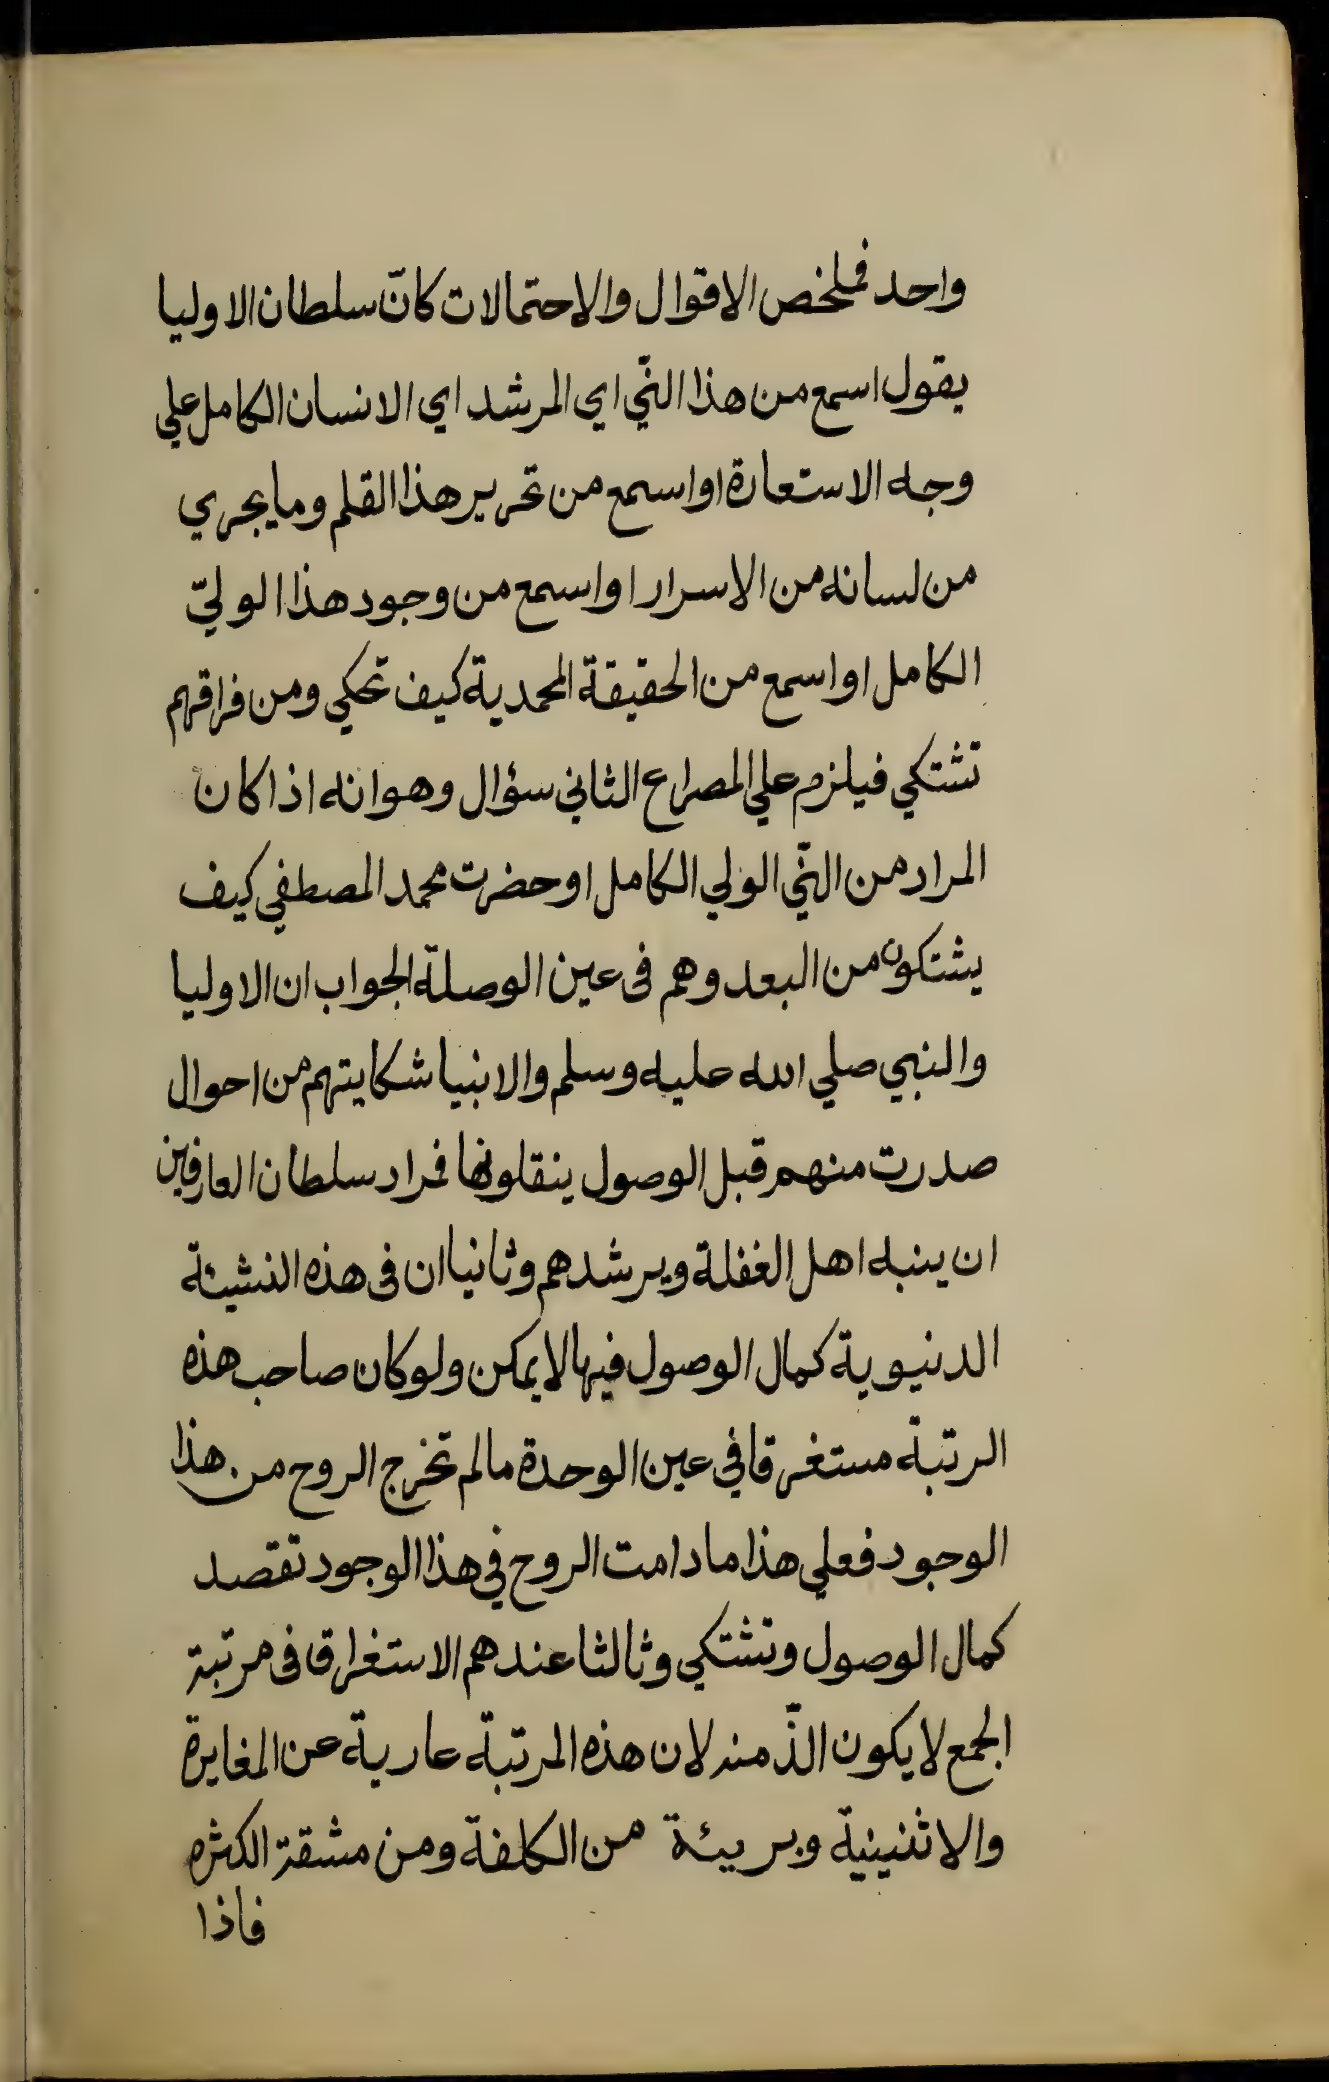 واحد فملخص الاقوال والاحتمالات كانّ سلطان الاوليا
يقول اسمع من هذا النّي اي المرشد اي الانسان الكامل علي
وجه الاستعارة او اسمع من تحرير هذا القلم وما يجري
من لسانه من الاسرار او اسمع من وجود هذا الوليّ
الكامل او اسمع من الحقيقة المحمدية كيف تحكي ومن فراقهم
تشتكي فيلزم علي المصراع الثاني سؤال وهو انه اذا كان
المراد من النّي الولي الكامل او حضرت محمد المصطفي كيف
يشتكون من البعد وهم فى عين الوصلة الجواب ان الاوليا
والنبي صلي الله عليه وسلم والانبيا شكايتهم من احوال
صدرت منهم قبل الوصول ينقلونها فمراد سلطان العارفين
ان ينبه اهل الغفلة ويرشدهم وثانيا ان فى هذه النشيئة
الدنيوية كمال الوصول فيها لا يمكن ولو كان صاحب هذه
الرتبة مستغرقا في عين الوحدة مالم تخرج الروح من هذا
الوجود فعلي هذا مادامت الروح في هذا الوجود تقصد
كمال الوصول وتشتكي وثالثا عندهم الاستغراق فى مرتبة
الجمع لا يكون الذّ منه لان هذه المرتبة عارية عن المغايرة
والاثنينية وبريئة من الكلفة ومن مشقة الكثره
فاذا